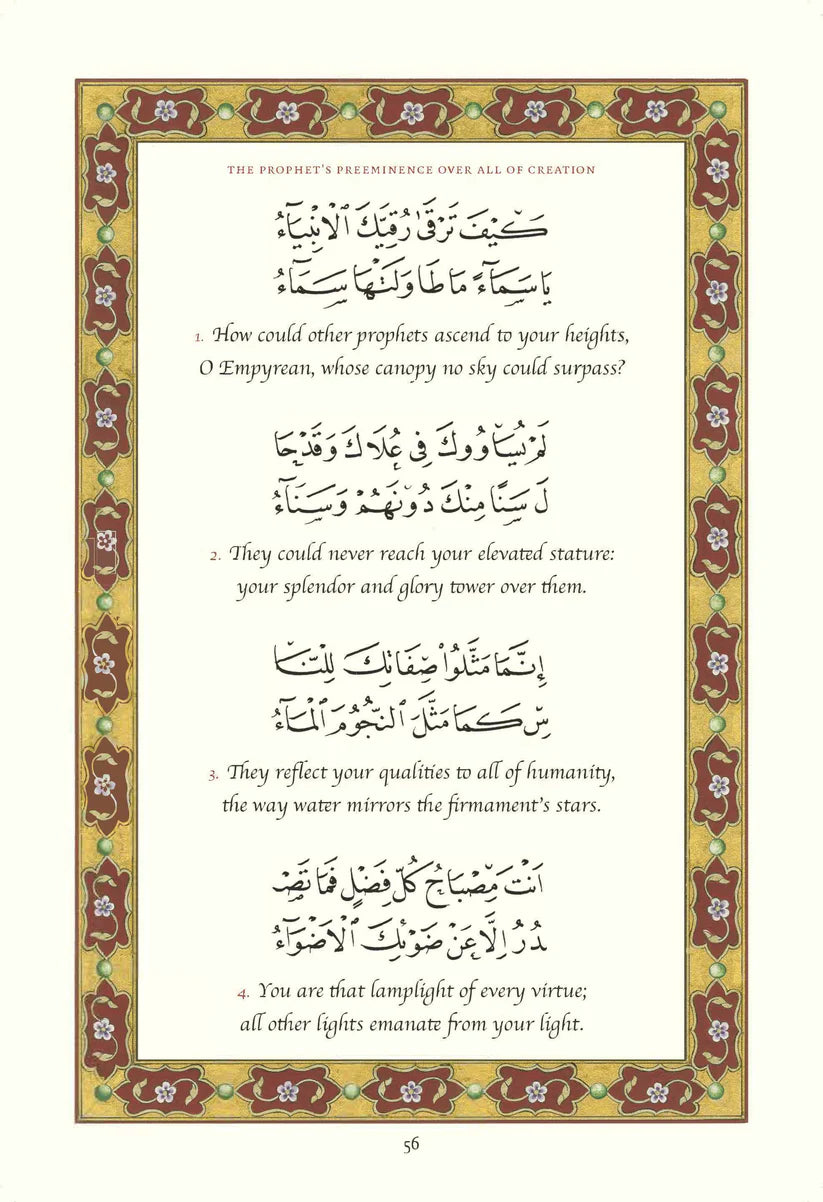 THE PROPHET'S PREEMINENCE OVER ALL OF CREATION
كَيْفَ تَرْقَىٰ رُقِيَّكَ ٱلْأَنْبِيَآءُ
يَا سَمَآءً مَا طَاوَلَتْهَا سَمَآءُ
1. How could other prophets ascend to your heights,
O Empyrean, whose canopy no sky could surpass?
لَمْ يُسَاوُوكَ فِي عُلَاكَ وَقَدْ حَا
لَ سَنًا مِنْكَ دُونَهُمْ وَسَنَآءُ
2. They could never reach your elevated stature:
your splendor and glory tower over them.
إِنَّمَا مَثَّلُوا۟ صِفَاتِكَ لِلنَّا
سِ كَمَا مَثَّلَ ٱلنُّجُومَ ٱلْمَآءُ
3. They reflect your qualities to all of humanity,
the way water mirrors the firmament's stars.
أَنْتَ مِصْبَاحُ كُلِّ فَضْلٍ فَمَا تَصْـ
ـدُرُ إِلَّا عَنْ ضَوْئِكَ ٱلْأَضْوَآءُ
4. You are that lamplight of every virtue;
all other lights emanate from your light.
56